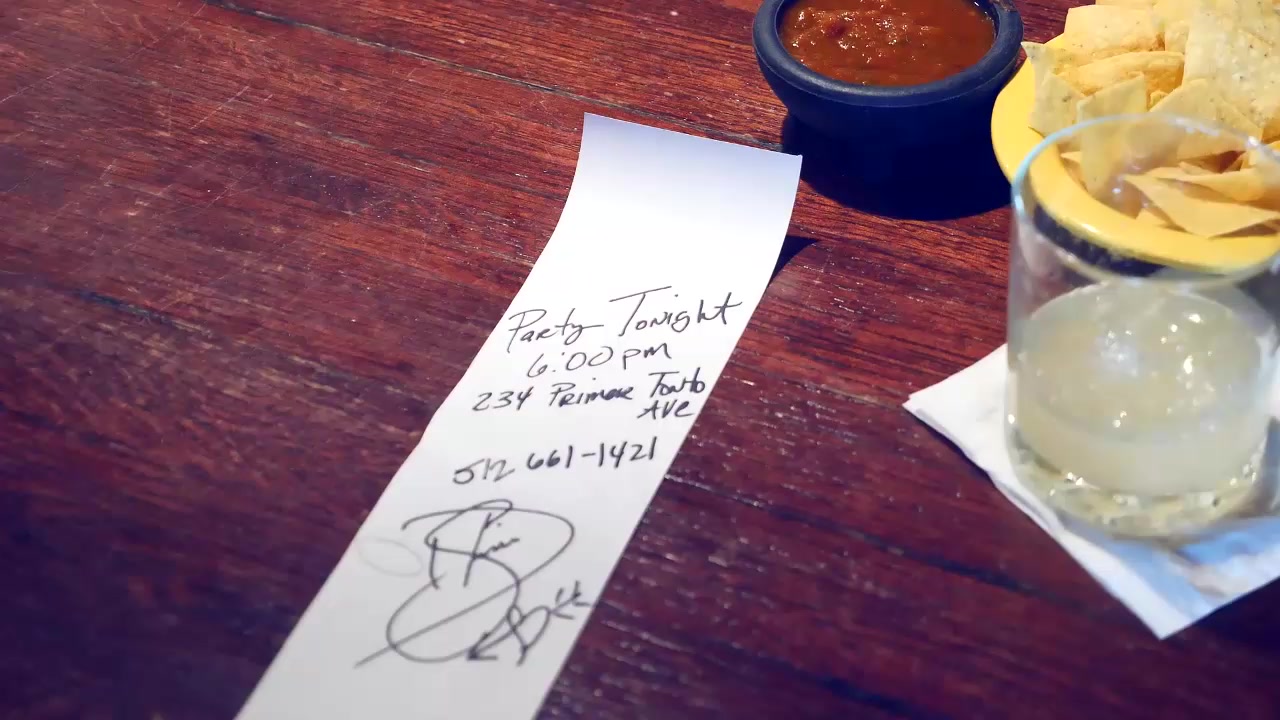 Party Tonight
6:00 pm
234 Primer
Ave
512 661-1421